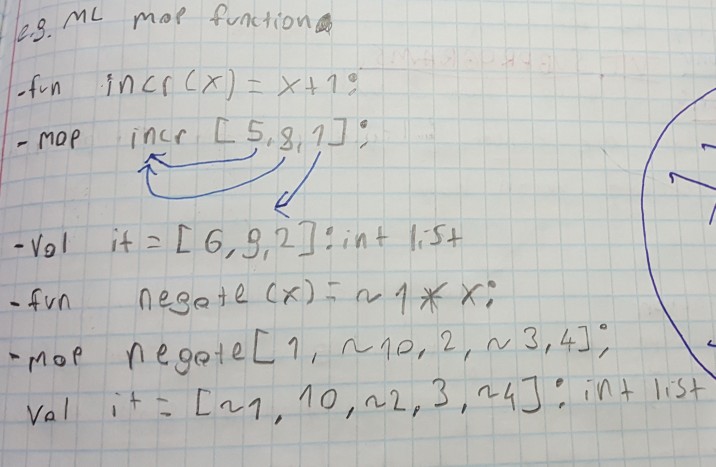 e.g. ML map function
-fun incr(x) = x+1;
-map incr [5,8,1];
-val it = [6,9,2]:int list
-fun negate(x) = ~1*x;
-map negate[1, ~10, 2, ~3, 4];
val it = [~1, 10, ~2, 3, ~4]: int list